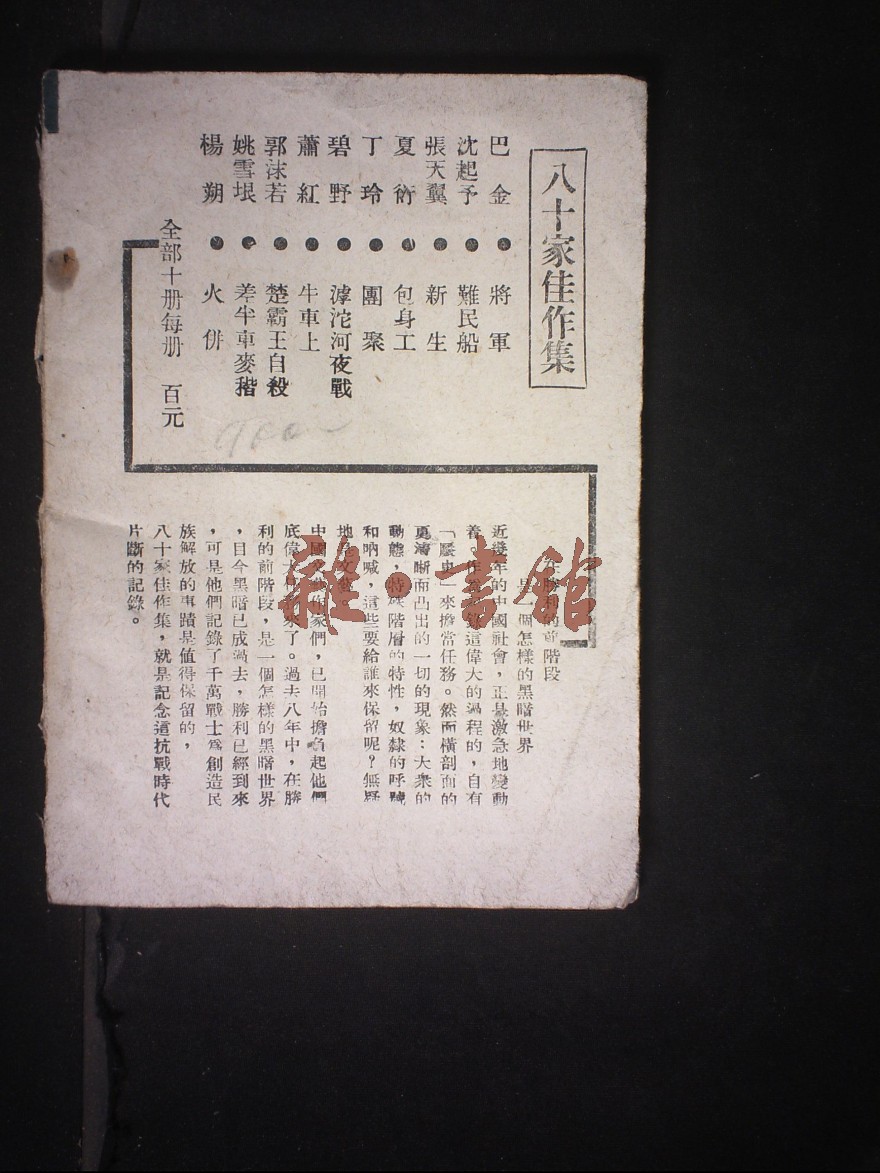 八十家佳作集
巴金●將軍
沈起予●難民船
張天翼●新生
夏衍●包身工
丁玲●團聚
碧野●滹沱河夜戰
蕭紅●牛車上
郭沫若●楚霸王自殺
姚雪垠●差半車麥稭
楊朔●火併
全部十册每册 百元
在勝利的前階段
是一個怎樣的黑暗世界
近幾年的中國社會，正是激急地變動
着。作為記錄這偉大的過程的，自有
「歷史」來擔當任務。然而橫剖面的
更清晰而凸出的一切的現象：大衆的
動態，特殊階層的特性，奴隸的呼號
和吶喊，這些要給誰來保留呢？無疑
地是文藝
中國文藝作家們，已開始擔負起他們
底偉大任務來了。過去八年中，在勝
利的前階段，是一個怎樣的黑暗世界
，目今黑暗已成過去，勝利已經到來
，可是他們記錄了千萬戰士爲創造民
族解放的事蹟是值得保留的，
八十家佳作集，就是記念這抗戰時代
片斷的記錄。
雜·書館